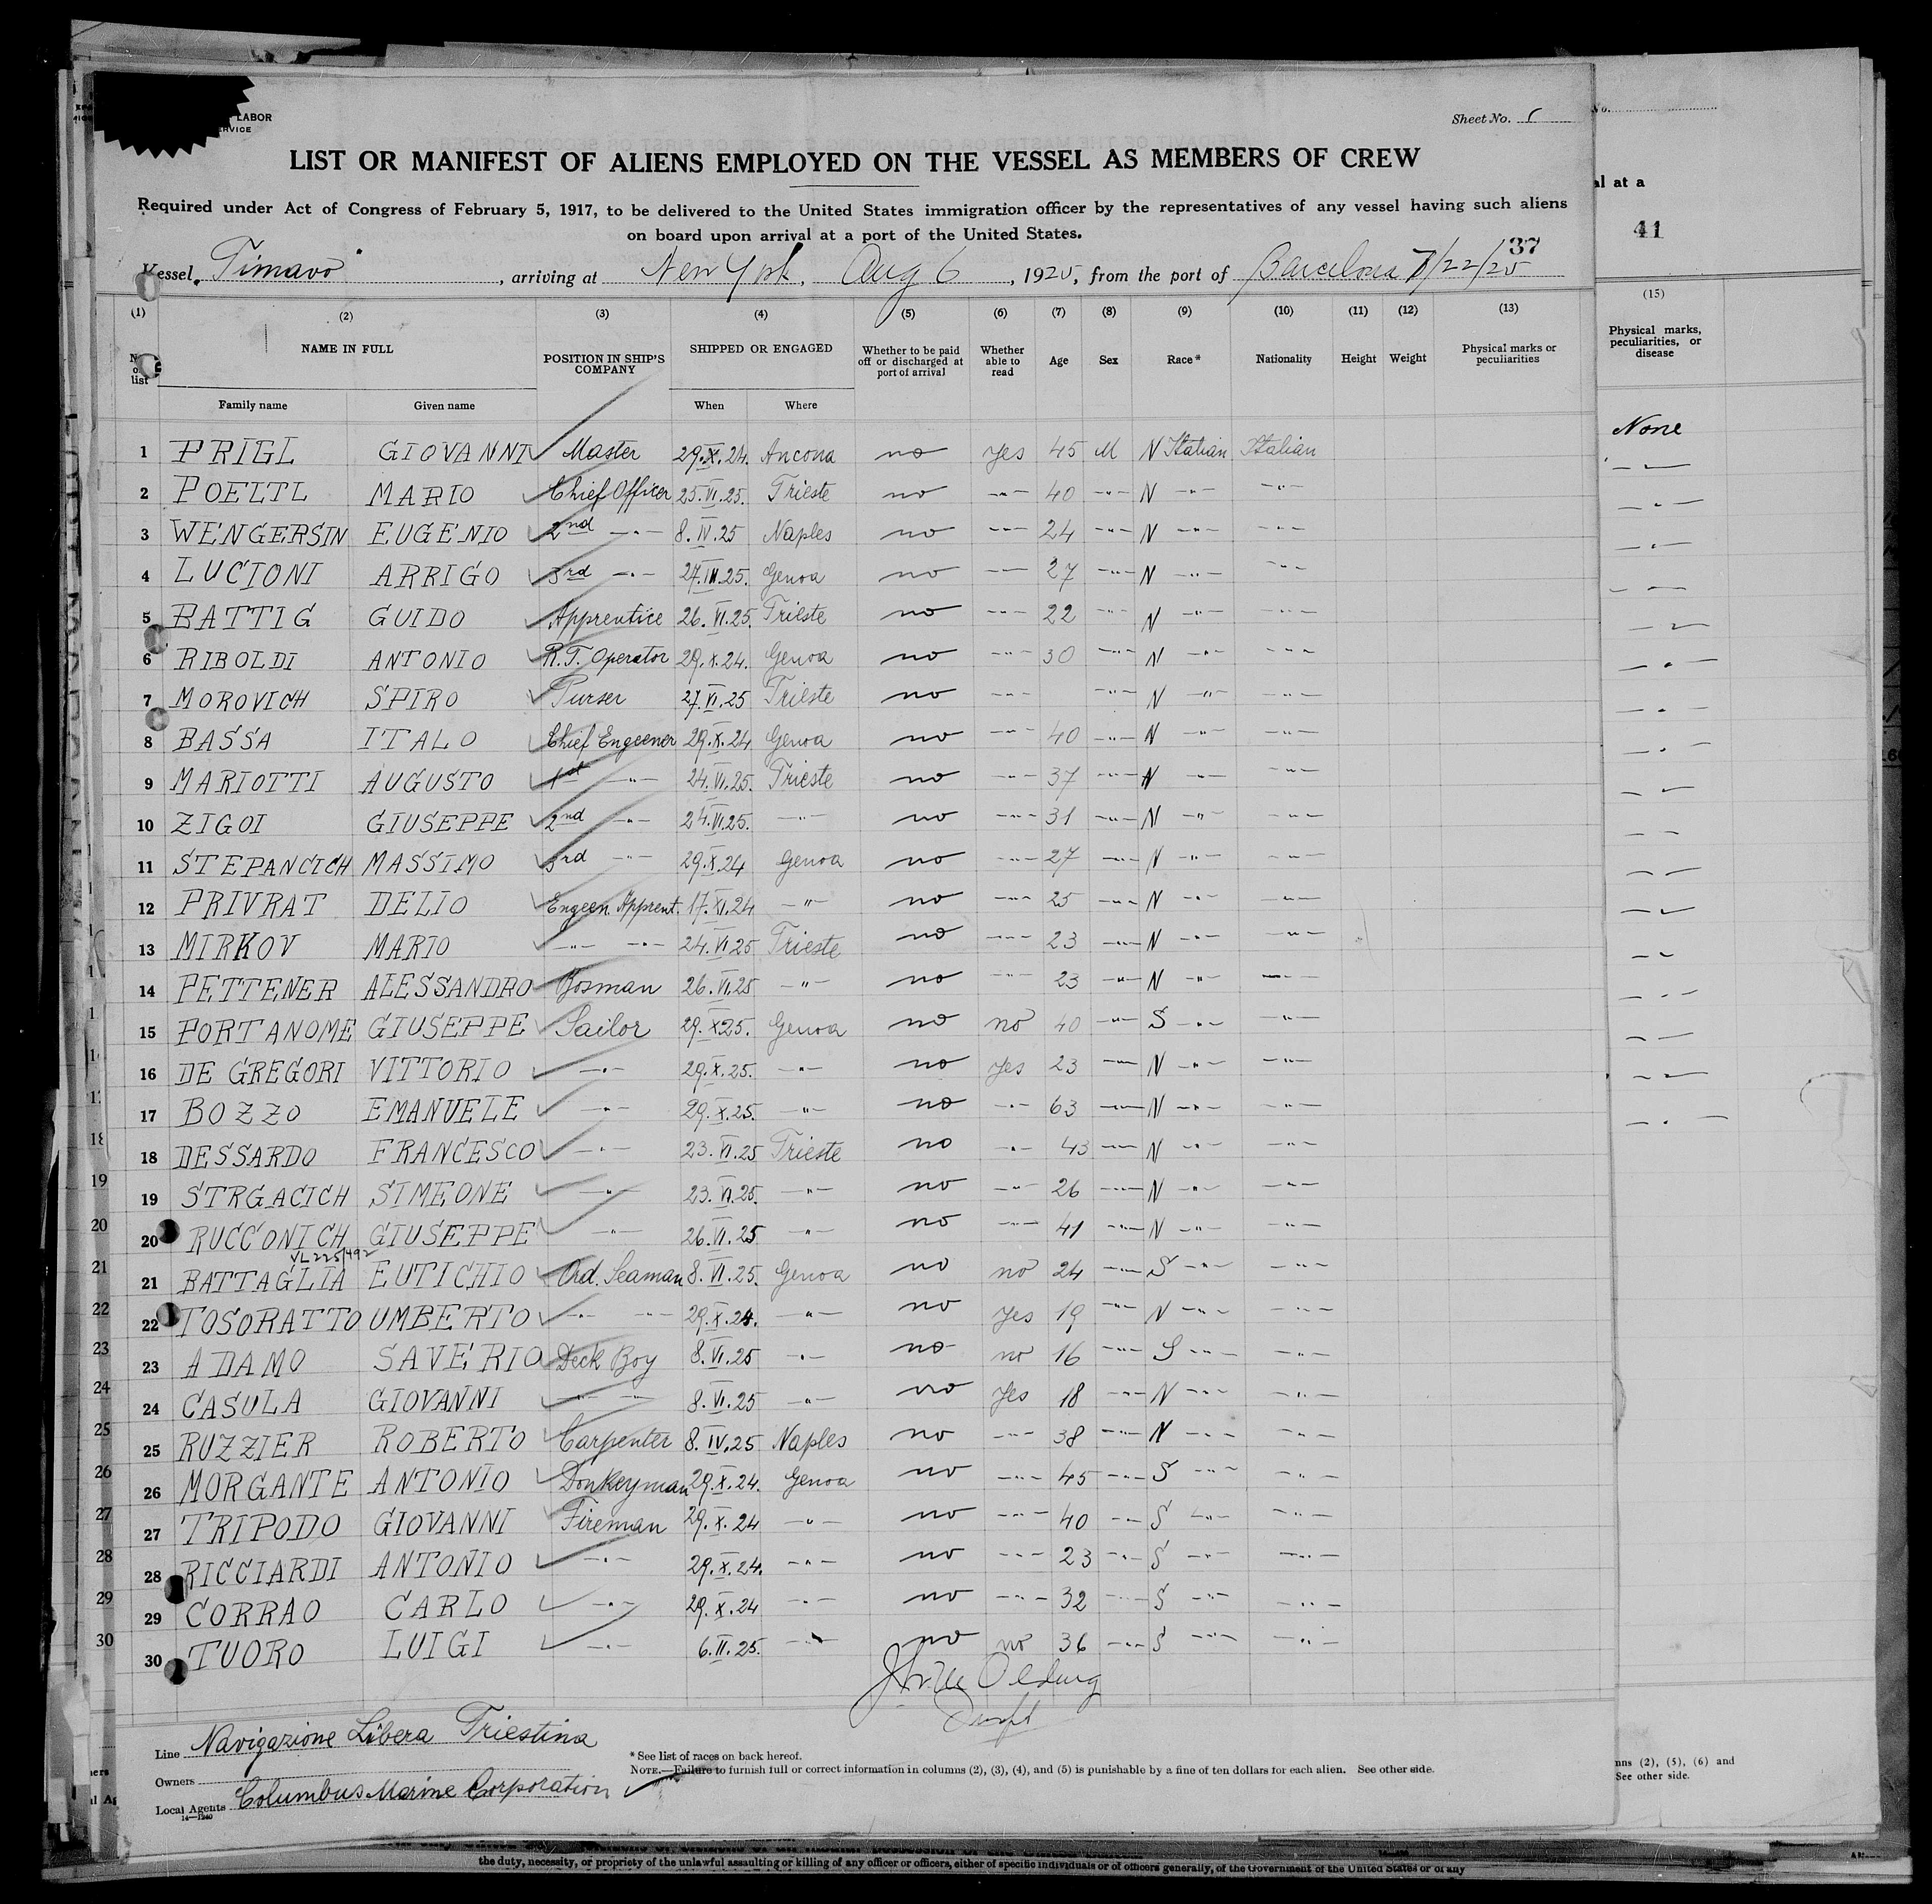 LABOR
Sheet No. 1
LIST OR MANIFEST OF ALIENS EMPLOYED ON THE VESSEL AS MEMBERS OF CREW
Required under Act of Congress of February 5, 1917, to be delivered to the United States immigration officer by the representatives of any vessel having such aliens
on board upon arrival at a port of the United States.
37
Vessel Timavo, arriving at New York, Aug 6, 1925, from the port of Barcelona 7/22/25
(1) (2) (3) (4) (5) (6) (7) (8) (9) (10) (11) (12) (13)
No. on list NAME IN FULL Family name Given name POSITION IN SHIP'S COMPANY SHIPPED OR ENGAGED When Where Whether to be paid off or discharged at port of arrival Whether able to read Age Sex Race* Nationality Height Weight Physical marks or peculiarities
1 PRIGL GIOVANNI Master 29.X.24. Ancona no yes 45 M N Italian Italian
2 POELTL MARIO Chief Officer 25.VI.25. Trieste no -"- 40 -"- N -"- -"-
3 WENGERSIN EUGENIO 2nd -"- 8.IV.25 Naples no -"- 24 -"- N -"- -"-
4 LUCIONI ARRIGO 3rd -"- 27.III.25. Genoa no -"- 27 -"- N -"- -"-
5 BATTIG GUIDO Apprentice 26.VI.25. Trieste no -"- 22 -"- N -"- -"-
6 RIBOLDI ANTONIO R.T. Operator 29.X.24. Genoa no -"- 30 -"- N -"- -"-
7 MOROVICH SPIRO Purser 27.VI.25 Trieste no -"- -"- N -"- -"-
8 BASSA ITALO Chief Engeener 29.X.24 Genoa no -"- 40 -"- N -"- -"-
9 MARIOTTI AUGUSTO 1st -"- 24.VI.25. Trieste no -"- 37 -"- N -"- -"-
10 ZIGOI GIUSEPPE 2nd -"- 24.VI.25. -"- no -"- 31 -"- N -"- -"-
11 STEPANCICH MASSIMO 3rd -"- 29.X.24 Genoa no -"- 27 -"- N -"- -"-
12 PRIVRAT DELIO Engeen. Apprent. 17.XI.24 -"- no -"- 25 -"- N -"- -"-
13 MIRKOV MARIO -"- -"- 24.VI.25 Trieste no -"- 23 -"- N -"- -"-
14 PETTENER ALESSANDRO Bosman 26.VI.25 -"- no -"- 23 -"- N -"- -"-
15 PORTANOME GIUSEPPE Sailor 29.X25. Genoa no no 40 -"- S -"- -"-
16 DE GREGORI VITTORIO -"- 29.X.25. -"- no yes 23 -"- N -"- -"-
17 BOZZO EMANUELE -"- 29.X.25. -"- no -"- 63 -"- N -"- -"-
18 DESSARDO FRANCESCO -"- 23.VI.25 Trieste no -"- 43 -"- N -"- -"-
19 STRGACICH SIMEONE -"- 23.VI.25. -"- no -"- 26 -"- N -"- -"-
20 RUCCONICH GIUSEPPE -"- 26.VI.25 -"- no -"- 41 -"- N -"- -"-
VL 225/492
21 BATTAGLIA EUTICHIO Ord. Seaman 8.VI.25. Genoa no no 24 -"- S -"- -"-
22 TOSORATTO UMBERTO -"- -"- 29.X.24. -"- no yes 19 -"- N -"- -"-
23 ADAMO SAVERIO Deck Boy 8.VI.25 -"- no no 16 -"- S -"- -"-
24 CASULA GIOVANNI -"- -"- 8.VI.25 -"- no yes 18 -"- N -"- -"-
25 RUZZIER ROBERTO Carpenter 8.IV.25 Naples no -"- 38 -"- N -"- -"-
26 MORGANTE ANTONIO Donkeyman 29.X.24. Genoa no -"- 45 -"- S -"- -"-
27 TRIPODO GIOVANNI Fireman 29.X.24 -"- no -"- 40 -"- S -"- -"-
28 RICCIARDI ANTONIO -"- 29.X.24. -"- no -"- 23 -"- S -"- -"-
29 CORRAO CARLO -"- 29.X.24 -"- no -"- 32 -"- S -"- -"-
30 TUORO LUIGI -"- 6.II.25. -"- no no 36 -"- S -"- -"-
Line Navigazione Libera Triestina
Owners
Local Agents Columbus Marine Corporation
14—1240
* See list of races on back hereof.
NOTE.—Failure to furnish full or correct information in columns (2), (3), (4), and (5) is punishable by a fine of ten dollars for each alien. See other side.
al at a
41
(15)
Physical marks, peculiarities, or disease
None
(2), (5), (6) and
See other side.
the duty, necessity, or propriety of the unlawful assaulting or killing of any officer or officers, either of specific individuals or of officers generally, of the Government of the United States or of any